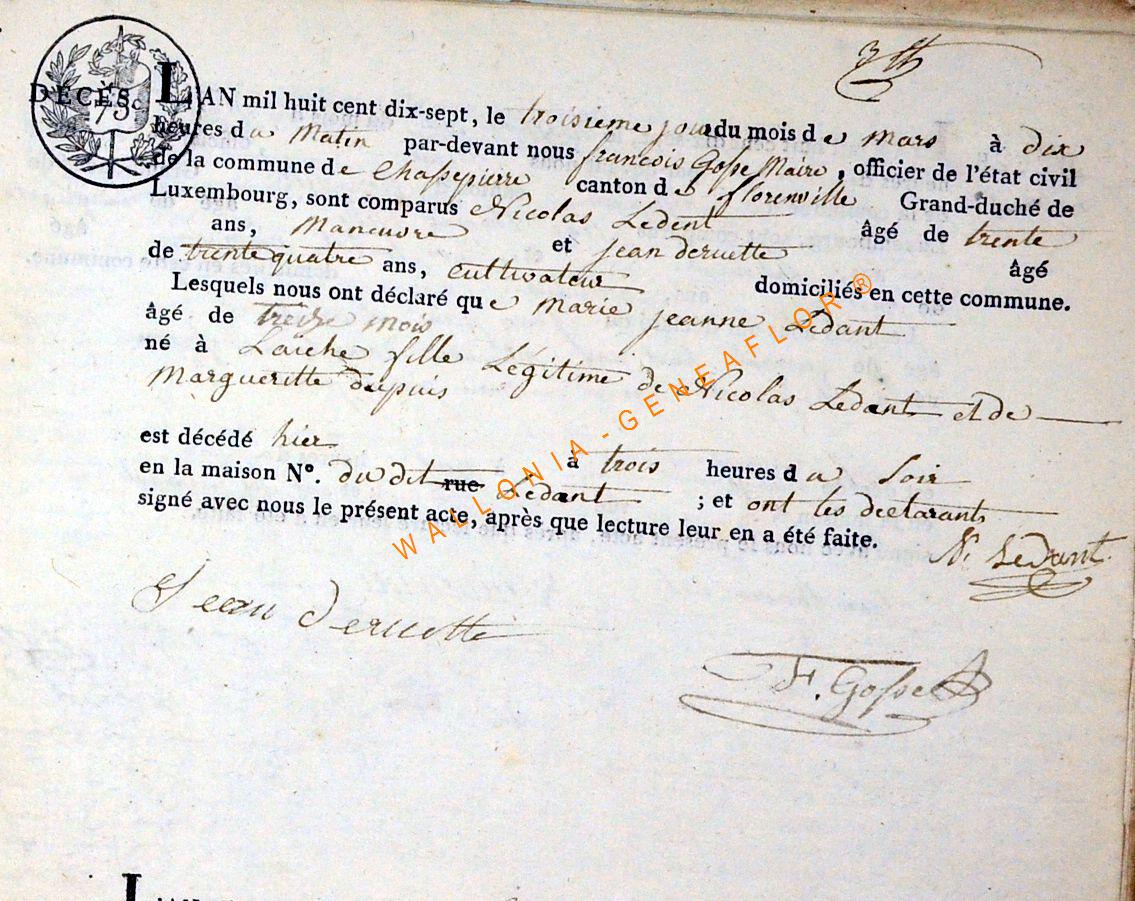 3
DÉCÈS.
75c
L'AN mil huit cent dix-sept, le troisieme jour du mois de mars à dix
heures du Matin par-devant nous francois Gosse Maire, officier de l'état civil
de la commune de Chassepierre canton de florenville Grand-duché de
Luxembourg, sont comparus Nicolas Ledent âgé de trente
ans, Maneuvre et jean deruette âgé
de trente quatre ans, cultivateur domiciliés en cette commune.
Lesquels nous ont déclaré que Marie jeanne Ledant
âgé de treize mois
né à Laiche fille Légitime de Nicolas Ledant et de
Margueritte dupuis
est décédé hier à trois heures du Soir
en la maison N°. du dit rue Ledant ; et ont les declarants
signé avec nous le présent acte, après que lecture leur en a été faite.
N. Ledant
Jean Deruette
F. Gosse
WALLONIA - GENEAFLOR ®